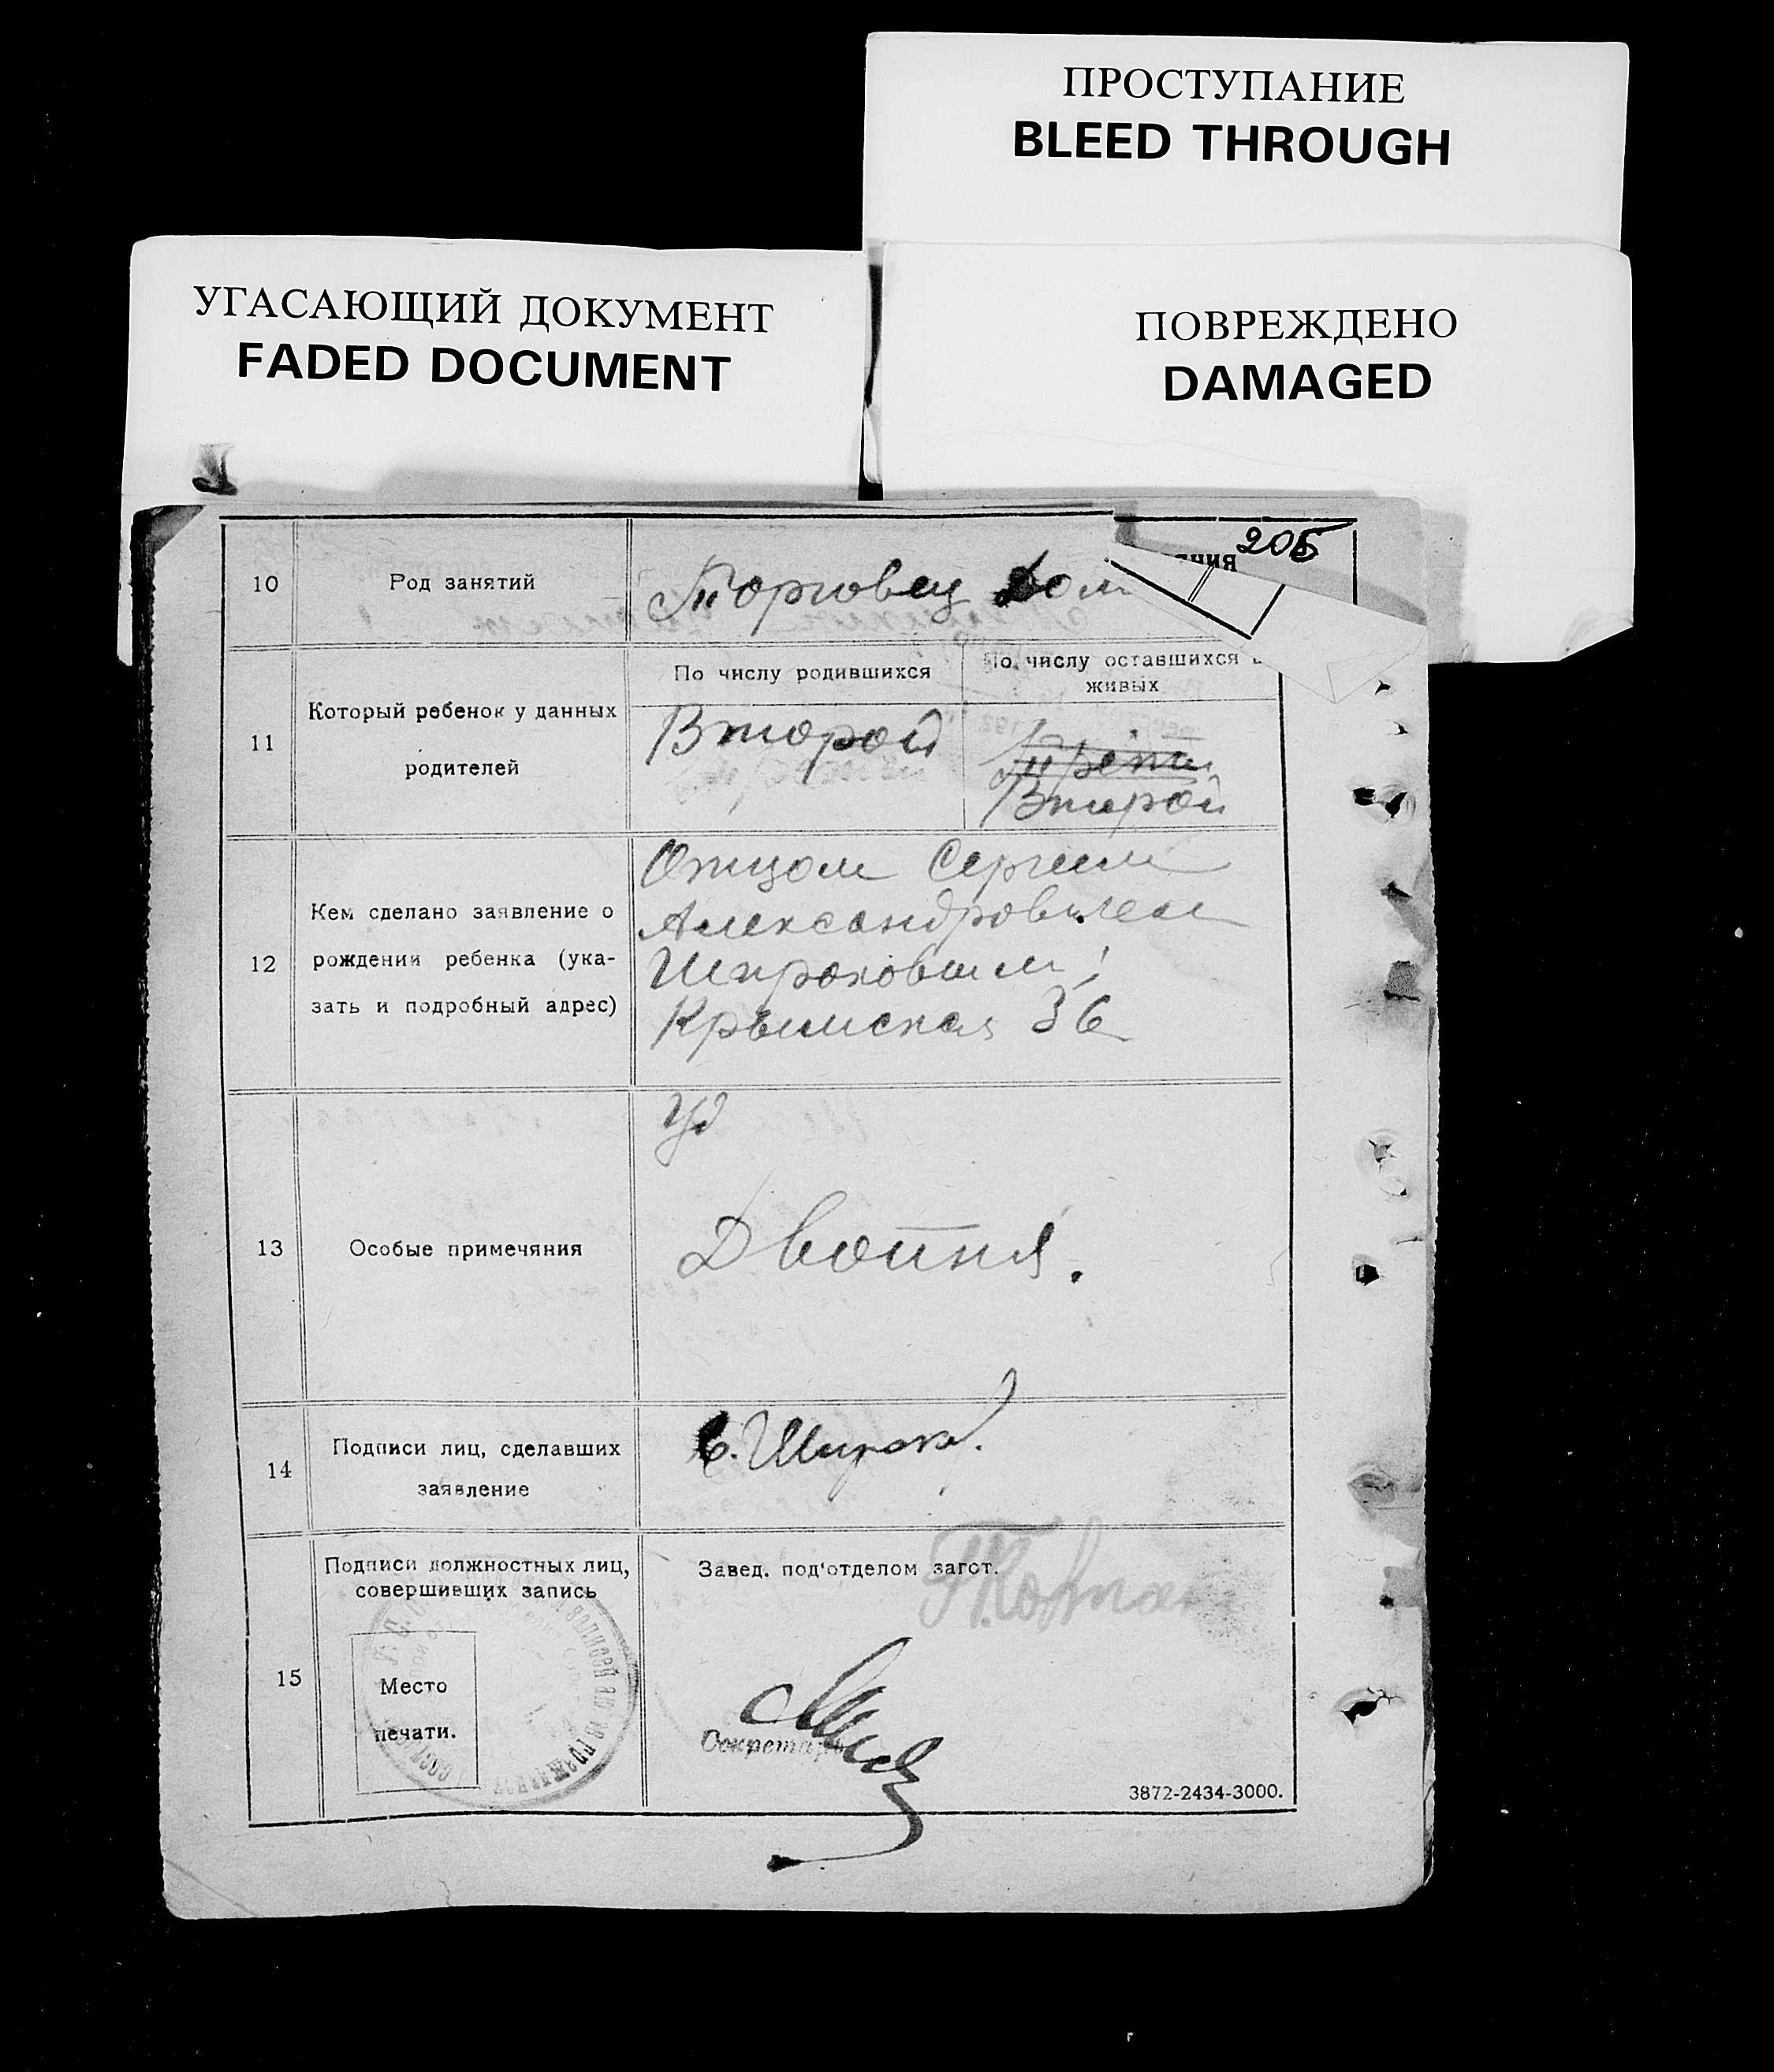 ПРОСТУПАНИЕ
BLEED THROUGH
УГАСАЮЩИЙ ДОКУМЕНТ
FADED DOCUMENT
ПОВРЕЖДЕНО
DAMAGED
205
10
Род занятий
Торговец Дом
11
Который ребенок у данных
родителей
По числу родившихся
По числу оставшихся в
живых
Второй
Трети
Второй
12
Кем сделано заявление о
рождении ребенка (ука-
зать и подробный адрес)
Отцом Сергеем
Александровичем
Широковым;
Крымская 36
13
Особые примечяния
Двойня.
14
Подписи лиц, сделавших
заявление
С. Широк.
15
Подписи должностных лиц,
совершивших запись
Место
печати.
Завед. под'отделом загот.
Секретарь
3872-2434-3000.